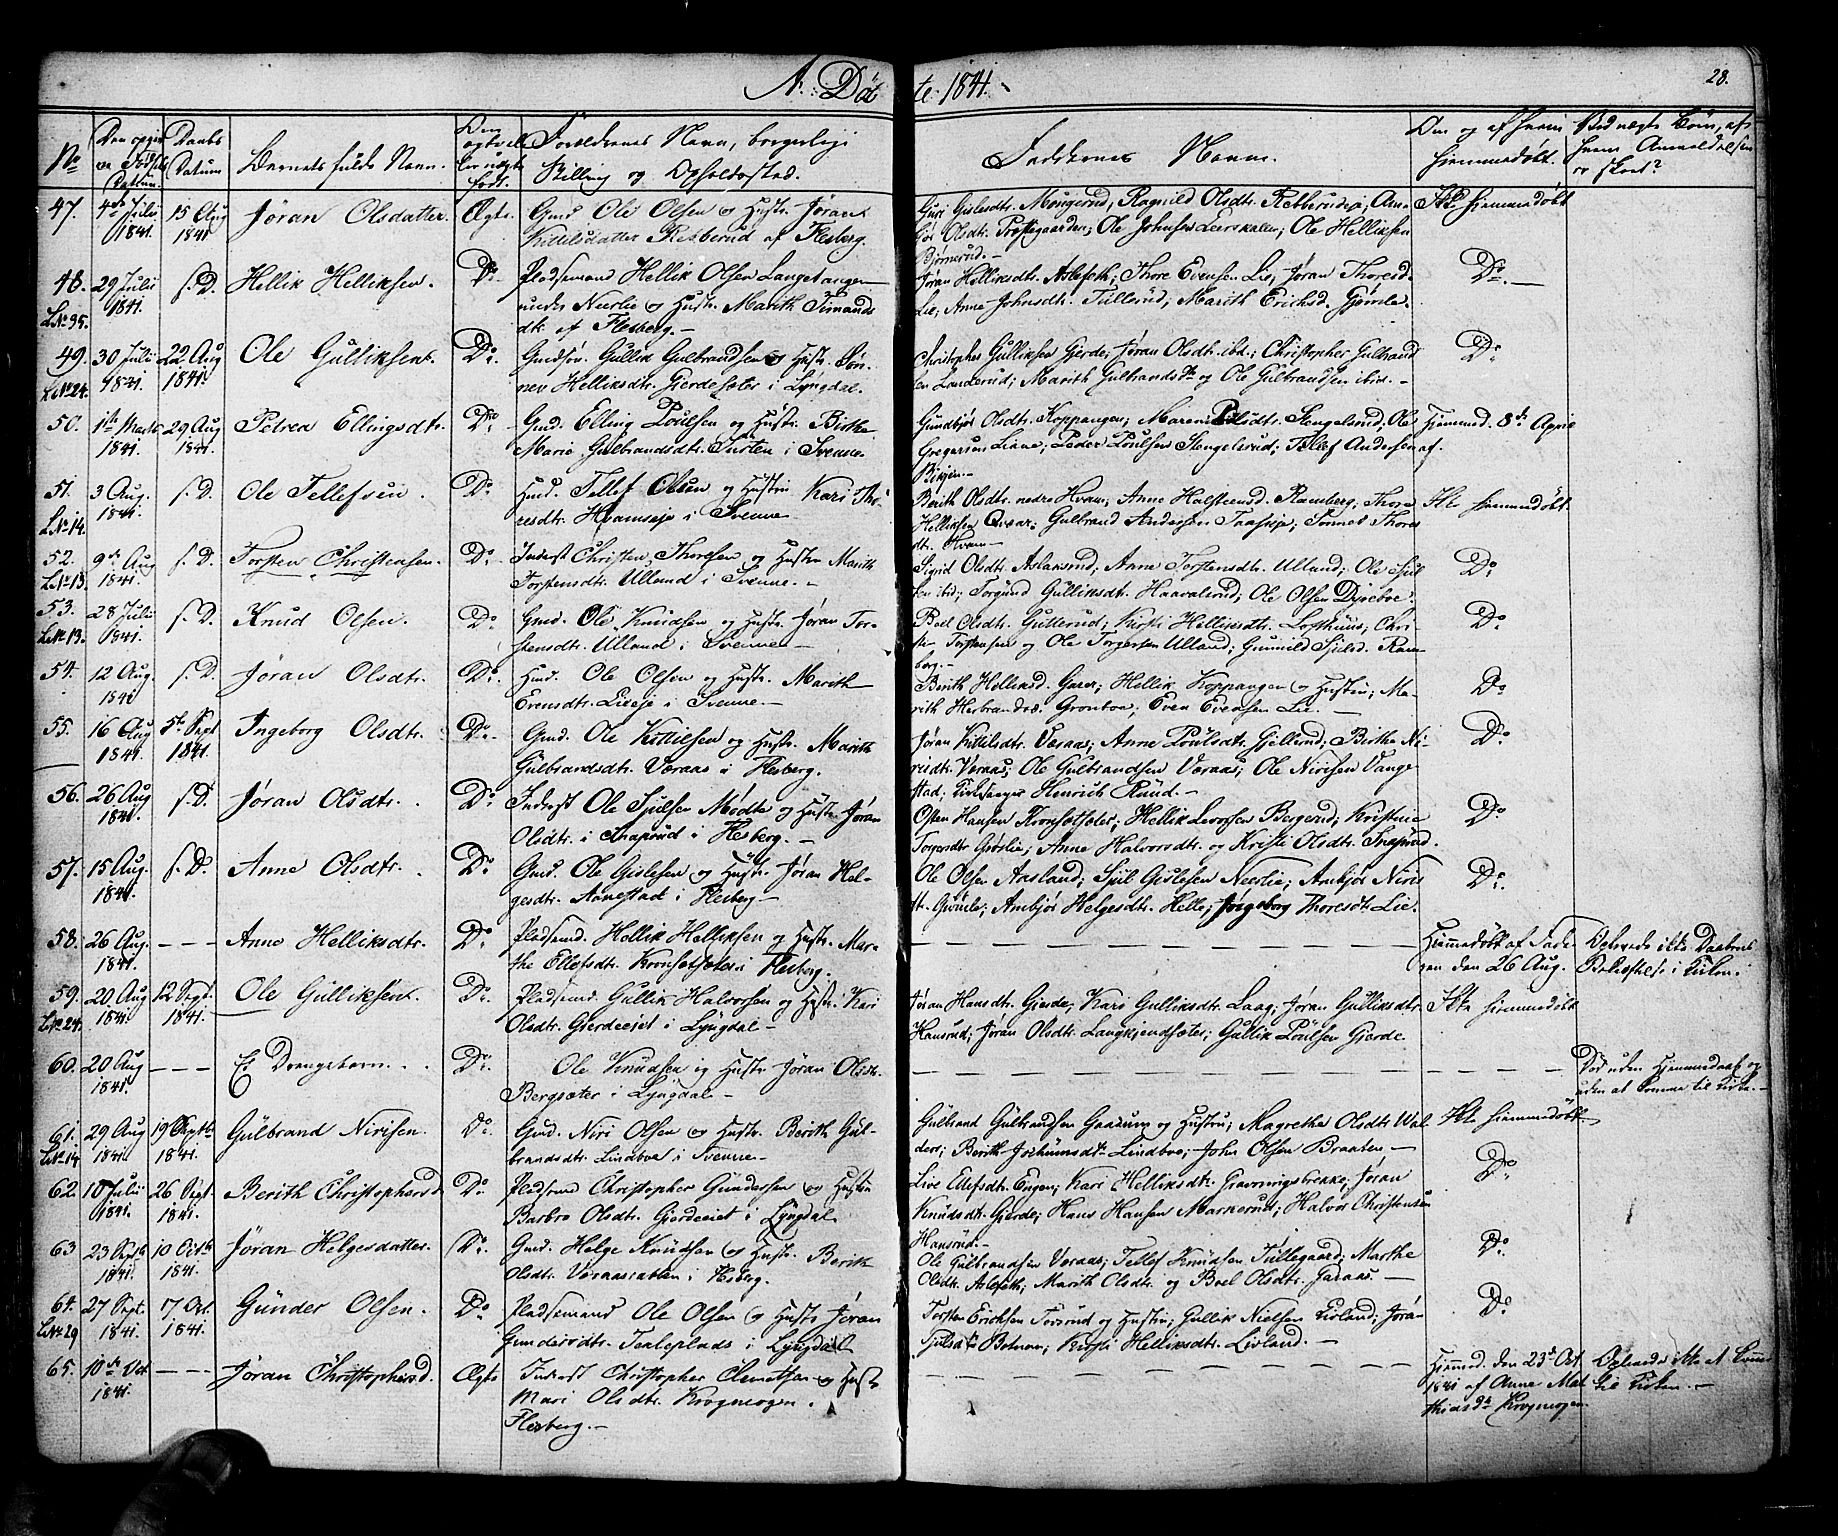 A: Döbte 1841.
28.
No
Barnets fulde Navn.
Daabs Datum
Forældrenes Navn, borgerlige Stilling og Opholdssted.
Faddernes Navne.
Om og af hvem hjemmedøbt.
47. 4de Julii 1841. 15 Aug 1841 Jøran Olsdatter. Ægte. Gmd. Ole Olsen og Hustr. Jøran
Kittilsdatter Rebberud af Flesberg.
Ole Johnsen Leerskallen; Ole Helliksen
Ikke hjemmedøbt
48. 29 Julii 1841. s. D. Hellik Helliksen. Do. Pladsemand Hellik Olsen Langetangen
L No 35. under Neerlie og Hustr. Marith Simonds
dtr. af Flesberg. —
Jøran Helliksdt. Aslefeth; Thore Evensen Lie, Jøran Thoresd.
Lie; Anne Johnsdt. Tullerud; Marith Ericksd. Gjømle.
Do. —
49. 30 Julii 1841. 22 Aug 1841. Ole Gulliksen. Do. Gmdsøn. Gullik Gulbrandsen og Hustr. Søn-
L No 24. nev Helliksdt. Gjerdesæter i Lyngdal.
Christopher Gulliksen Gjerde; Jøran Olsdt. ibd.; Christopher Gulbrand
sen Landerud; Marith Gulbrandsdt og Ole Gulbrandsen ibid. —
Do
50. 1ste Marts 1841. 29 Aug 1841. Petrea Ellingsdtr. Do. Gmd. Elling Poulsen og Hustr. Birthe
Marie Gulbrandsdtr. Turten i Svenne
Gundbjør Olsdt. Koppangen; Maren Poulsdt. Stengelsrud; Ole
Gregersen Liane; Peder Poulsen Stengelsrud; Tellef Andersen
Hjemmed. 8de April
51. 3 Aug. 1841. s. D. Ole Tellefsen. Do Hmd. Tellef Olsen og Hustru Kari Tho-
L No 14. resdtr. Hvamseie i Svenne
Berith Olsdt. nedre Hvam; Anne Halsteensd. Ramberg; Thore
Helliksen Gulbrand Andersen Tonnes Thores
dt. Hvam —
Ikke hjemmedøbt.
52. 9de Aug 1841. s. D. Torsten Christensen. Do. Inderst Christen Thoresen og Hustr Marith
L No 13. Torstensdtr. Ulland i Svenne. —
Sigrid Olsdt. Aslaksrud; Anne Torstensdt. Ulland; Ole Sjul
sen ibid; Torgund Gulliksdt. Haavalsrud; Ole Olsen Dyreboe.
Do
53. 28 Julii 1841. s. D. Knud Olsen. Do Gmd. Ole Knudsen og Hustr. Jøran Tor-
L No 13. stensdtr. Ulland i Svenne —
Boel Olsdt. Gullerud; Kirsti Helliksdt. Lofthuus; Chri-
ste Torstensen og Ole Torgersen Ulland; Gunnild Sjulsd. Ram-
berg. —
Do
54. 12 Aug. 1841 s. D. Jøran Olsdtr. Do. Hmd. Ole Olsen og Hustr. Marith
Evensdtr. Lieeje i Svenne. —
Berith Helliksd. Hellik Koppangen og Hustru; Ma-
rith Herbrandsd. Grønboe; Even Evensen Lie. —
Do
55. 16 Aug 1841. 5te Sept 1841 Ingeborg Olsdtr. Do. Gmd. Ole Kittilsen og Hustr. Marith
Gulbrandsdtr. Væraas i Flesberg.
Jøran Kittilsdtr. Væraas; Anne Poulsdtr. Gjellerud; Berthe Ni-
risdtr. Væraas; Ole Gulbrandsen Væraas; Ole Nirisen Vange-
stad; Kirkesanger Henrich Ruud. —
Do
56. 26 Aug 1841. s. D. Jøran Olsdtr. Do Inderst Ole Sjulsen Modte og Hustr. Jøran
Olsdtr. i Snapsrud i Flesberg. —
Osten Hansen Kronsætsæter; Hellik Bergerud; Kristine
Torgersdt Grøslie; Anne Halvorsdt. og Kirsti Olsdt. Snapsrud.
Do
57. 15 Aug. 1841 s. D. Anne Olsdtr. Do Gmd. Ole Gislesen og Hustr. Jøran Hel-
gesdtr. Aanestad i Flesberg —
Ole Olsen Aasland; Sjul Gislesen Neerlie; Ambjør Niris
dt. Gjømle; Ambjør Helgesdt. Helle; Ingeborg Thoresdt Lie.
Do.
58. 26 Aug. 1841. — — — Anne Helliksdtr. Do. Pladsemd. Hellik Helliksen og Hustr. Mar-
the Ellefsdtr. Kronsætsæter i Flesberg.
— — — Hjemmedøbt af Fade-
ren den 26 Aug.
Opleved ikke Daabens
Bekræftelse i Kirken.
59. 20 Aug 1841. 12 Sept. 1841. Ole Gulliksen. Do. Pladsemd. Gullik Halvorsen og Hustr. Kari
L No 24. Olsdtr. Gjerdeeiet i Lyngdal —
Jøran Hansdt. Gjerde; Kari Gulliksdtr. Laag; Jøran Gulliksdtr.
Hansrud; Jøran Olsdt. Langkjendsæter; Gullik Poulsen Gjerde.
Ikke hjemmedøbt
60. 20 Aug 1841. — — — Et Drengebarn. Do. Ole Knudsen og Hustr Jøran Olsdtr.
Bergsæter i Lyngdal —
— — — Død uden Hjemmedaab og
uden at komme til Kirke. —
61. 29 Aug 1841. 19 Septbr 1841. Gulbrand Nirisen. Do. Gmd. Niri Olsen og Hustr. Berith Gul-
L No 14 brandsdtr. Lindboe i Svenne —
Gulbrand Gulbrandsen Gaasum og Hustru; Magrethe Olsdt. Wal
ders; Berith Lindboe; John Olsen Braaten —
Ikke hjemmedøbt
62. 10 Julii 1841. 26 Sept. 1841. Berith Christophersd. Do. Pladsemd Christopher Gundersen og Hustru
Barbro Olsdtr. Gjerdeeiet i Lyngdal
Live Ellefsdt. Engen; Kari Helliksdt. Gravningsbrekke; Jøran
Knudsdt. Gjerde; Hans Hansen Markerud; Halvor Christensen
Hansrud. —
Do
63 23 Sept 1841. 10 Octbr 1841. Jøran Helgesdatter. Do. Gmd. Helge Knudsen og Hustr. Berith
Olsdtr. Væraasrabben i Flesberg.
Ole Gulbrandsen Væraas; Tellef Knudsen Tullegaard; Marthe
Olsdtr. Aslefeth; Marith Olsdt. og Boel Olsdtr. Faraas. —
Do
64. 27 Sept. 1841. 17 Oct. 1841. Gunder Olsen. Do Pladsemand Ole Olsen og Hustr Jøran
L No 29 Gundersdtr. Tealeplads i Lyngdal
Torsten Ericksen Forsrud og Hustru; Gullik Nielsen Livland; Jøran
Kirsti Helliksdt. Livland. —
Do
65. 10de Oct 1841. — — — Jøran Christophersd. Ægte Inderst Christopher Clemetsen og Hustr
Mari Olsdtr. Krogmogen.
Flesberg. —
— — — Hjemmed. den 23de Oct.
1841 af Anne Mat
thiasdtr Krogmogen.
Oplevede ikke at komme
til Kirken. —